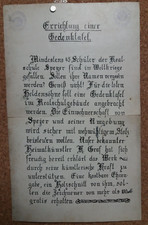 Errichtung einer
Gedenktafel.
Mindestens 40 Schüler der Real-
schule Speyer sind im Weltkriege
gefallen. Sollen ihre Namen vergessen
werden? Gewiß nicht! Für die toten
Helden soll eine Gedenktafel
im Realschulgebäude angebracht
werden. Die Einwohnerschaft von
Speyer und seiner Umgebung
wird sicher mit wehmütigem Stolz
beisteuern wollen. Unser bekannter
Heimatkünstler K. Graf hat sich
freudig bereit erklärt das Werk
durch seine künstlerische Kraft zu
unterstützen. Eine kostbare Ehren-
gabe, ein Holzschnitt von ihm, sol-
len die Zeichner von mehr als
gratis erhalten.